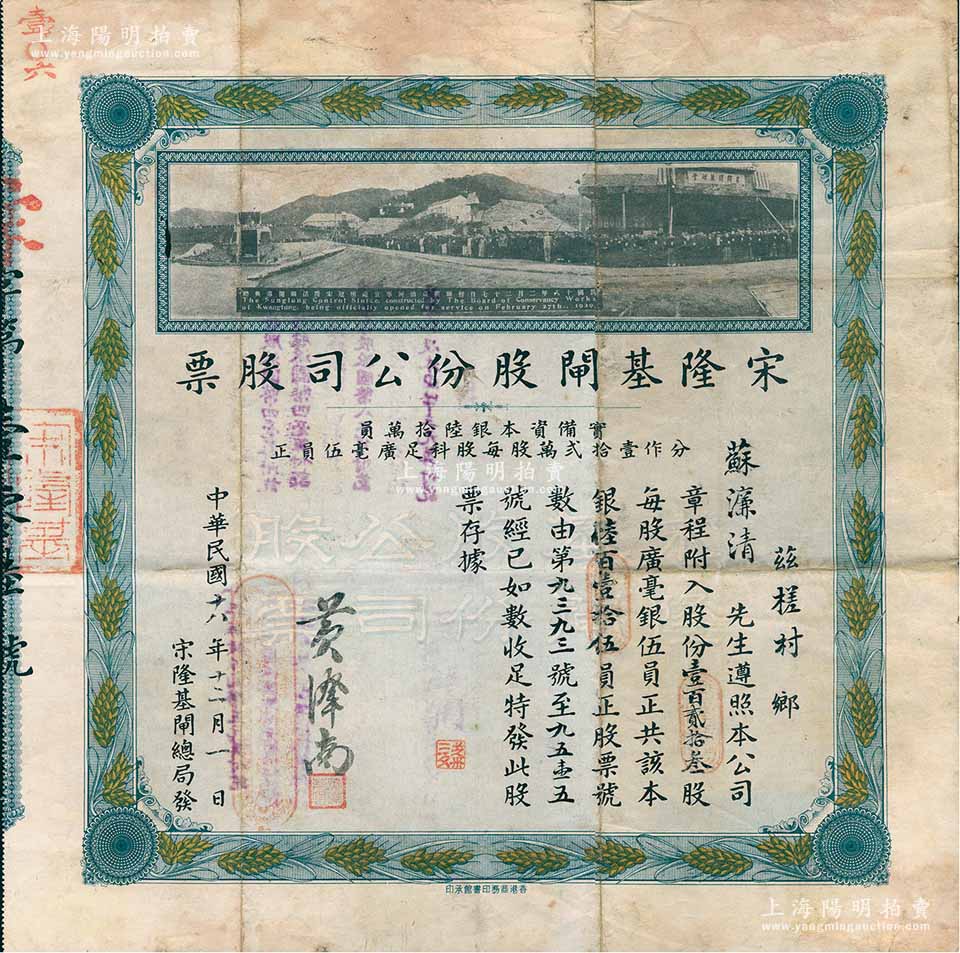 上海陽明拍賣
www.yangmingauction.com
The Sunglung Control Sluice, constructed by The Board of Conservancy Works
of Kwangtung, being officially opened for service on February 27th,
宋隆基閘股份公司股票
實備資本銀陸拾萬員
分作壹拾弍萬股每股科足廣毫伍員正
茲槎村 鄉
蘇濂清 先生遵照本公司
章程附入股份壹百貳拾叁股
每股廣毫銀伍員正共該本
銀陸百壹拾伍員正股票號
數由第九三九三號至九五壹五
號經已如數收足特發此股
票存據
黃
南
中華民國十八年十二月一日
宋隆基閘總局發
基閘股份公司股票
壹
六
號
香港商務印書館承印
上海陽明拍賣
www.yangmingauction.com
上海陽明拍賣
www.yangmingauction.com